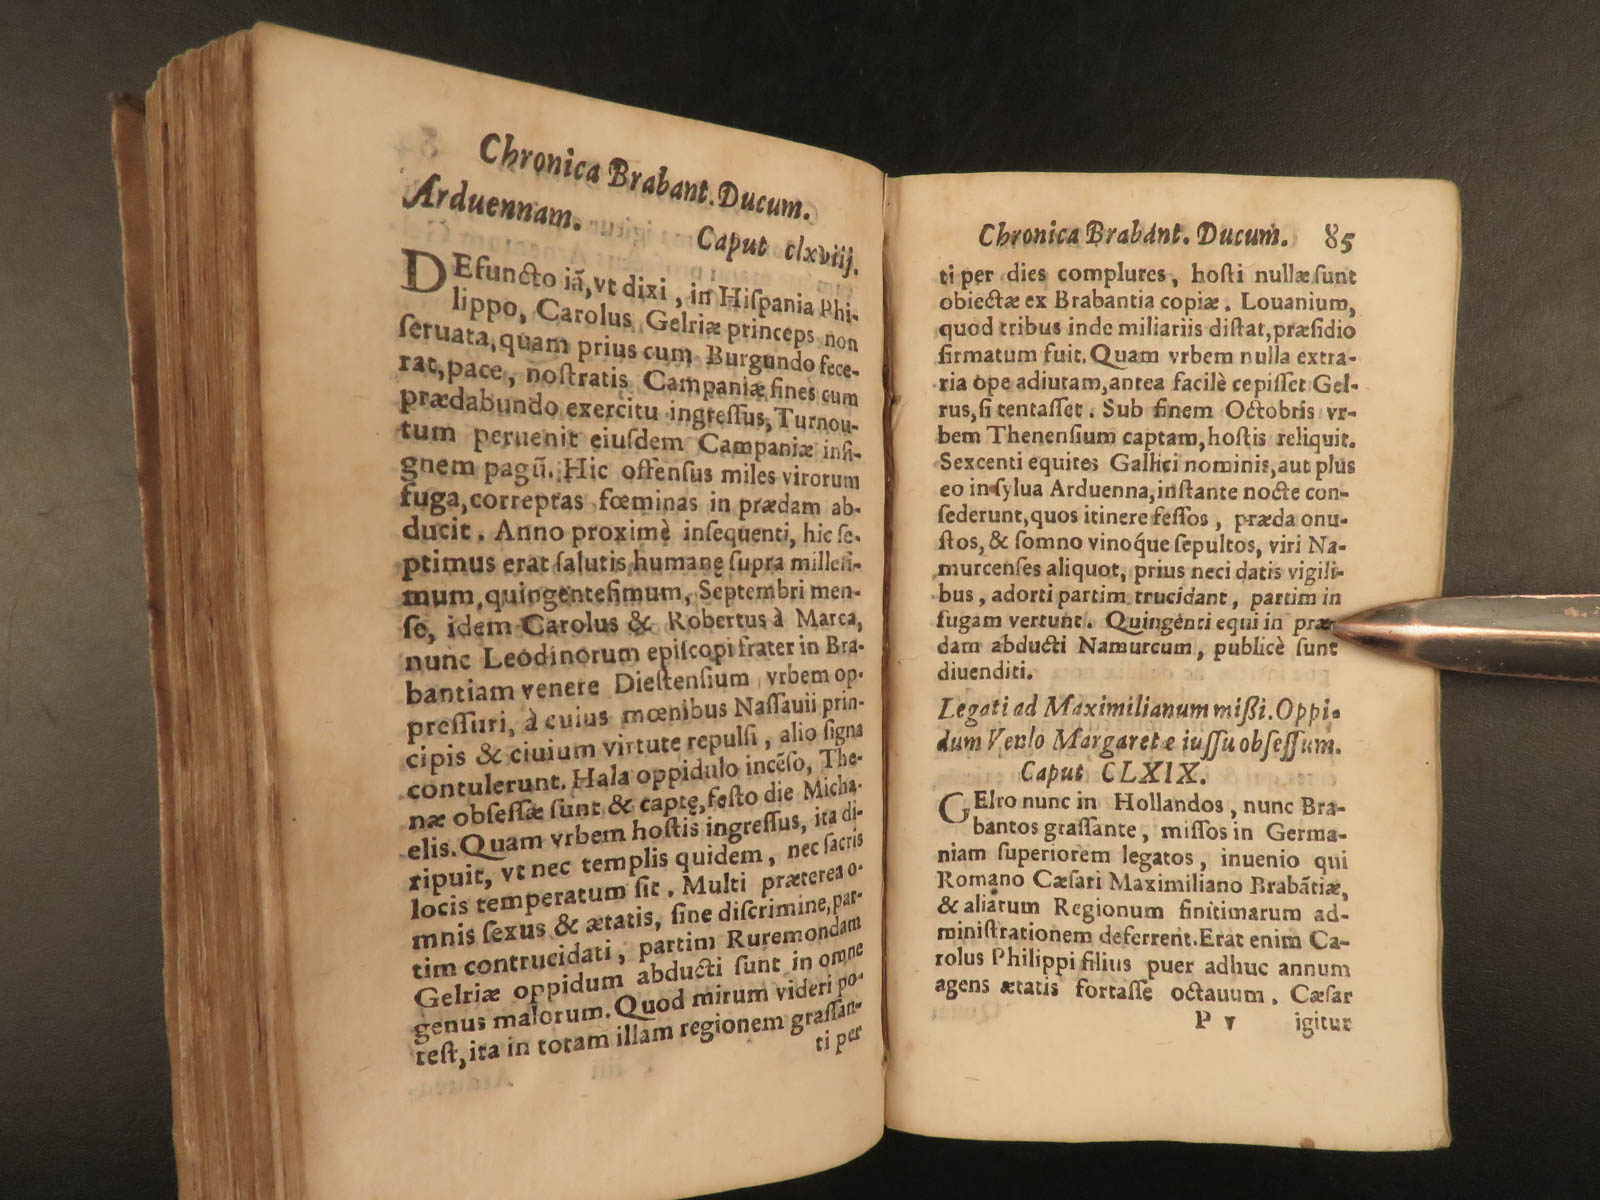 Chronica Brabant. Ducum.
Arduennam.
Caput clxviij.
DEfuncto iā, vt dixi, in Hiſpania Phi-
lippo, Carolus Gelriæ princeps non
ſeruata, quam prius cum Burgundo fece-
rat, pace, noſtratis Campaniæ fines cum
prædabundo exercitu ingreſſus, Turnou-
tum peruenit eiuſdem Campaniæ inſi-
gnem pagū. Hic offenſus miles virorum
fuga, correptas fœminas in prædam ab-
ducit. Anno proximè inſequenti, hic ſe-
ptimus erat ſalutis humanę ſupra milleſi-
mum, quingenteſimum, Septembri men-
ſe, idem Carolus & Robertus à Marca,
nunc Leodinorum epiſcopi frater in Bra-
bantiam venere Dieſtenſium vrbem op-
preſſuri, à cuius mœnibus Naſſauii prin-
cipis & ciuium virtute repulſi, alio ſigna
contulerunt. Hala oppidulo incēſo, The-
næ obſeſſæ ſunt & captę, feſto die Micha-
elis. Quam vrbem hoſtis ingreſſus, ita di-
ripuit, vt nec templis quidem, nec ſacris
locis temperatum ſit. Multi præterea o-
mnis ſexus & ætatis, ſine diſcrimine, par-
tim contrucidati, partim Ruremondam
Gelriæ oppidum abducti ſunt in omne
genus malorum. Quod mirum videri po-
teſt, ita in totam illam regionem graſſan-
ti per
Chronica Brabant. Ducum. 85
ti per dies complures, hoſti nullæ ſunt
obiectæ ex Brabantia copiæ. Louanium,
quod tribus inde miliariis diſtat, præſidio
firmatum fuit. Quam vrbem nulla extra-
ria ope adiutam, antea facilè cepiſſet Gel-
rus, ſi tentaſſet. Sub finem Octobris vr-
bem Thenenſium captam, hoſtis reliquit.
Sexcenti equites Gallici nominis, aut plus
eo in ſylua Arduenna, inſtante nocte con-
ſederunt, quos itinere feſſos, præda onu-
ſtos, & ſomno vinoq́ue ſepultos, viri Na-
murcenſes aliquot, prius neci datis vigili-
bus, adorti partim trucidant, partim in
fugam vertunt. Quingenti equi in præ-
dam abducti Namurcum, publicè ſunt
diuenditi.
Legati ad Maximilianum miſſi. Oppi-
dum Venlo Margaretæ iuſſu obſeſſum.
Caput CLXIX.
GElro nunc in Hollandos, nunc Bra-
bantos graſſante, miſſos in Germa-
niam ſuperiorem legatos, inuenio qui
Romano Cæſari Maximiliano Brabātiæ,
& aliarum Regionum finitimarum ad-
miniſtrationem deferrent. Erat enim Ca-
rolus Philippi filius puer adhuc annum
agens ætatis fortaſſe octauum. Cæſar
P v igitur